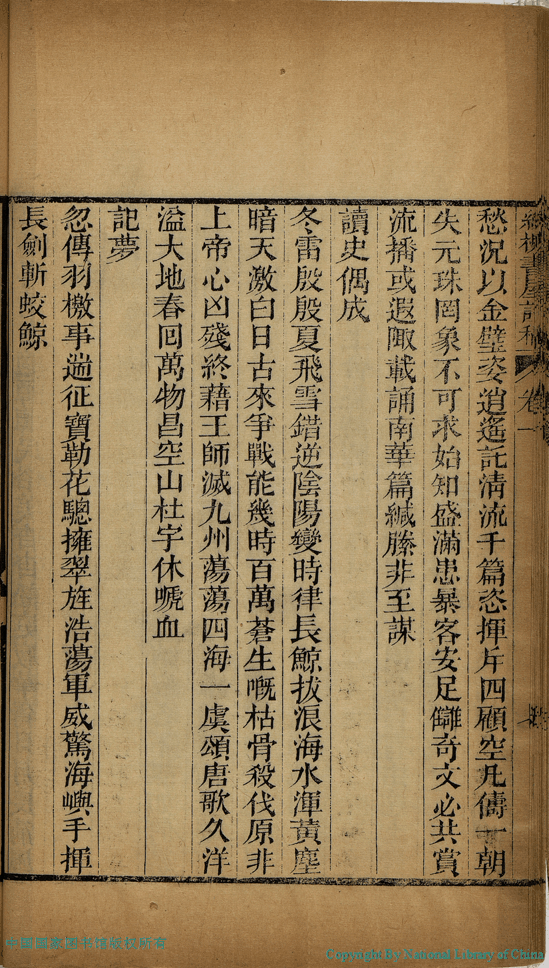 愁況以金璧姿逍遙託清流千篇恣揮斥四顧空凡儔一朝
失元珠罔象不可求始知盛滿患暴客安足讎奇文必共賞
流播或遐陬載誦南華篇緘縢非至謀
讀史偶成
冬雷殷殷夏飛雪錯逆陰陽變時律長鯨拔浪海水渾黃塵
暗天激白日古來爭戰能幾時百萬蒼生嘅枯骨殺伐原非
上帝心凶殘終藉王師滅九州蕩蕩四海一虞頌唐歌久洋
溢大地春回萬物昌空山杜宇休嗁血
記夢
忽傳羽檄事遄征寶勒花驄擁翠旌浩蕩軍威驚海嶼手揮
長劍斬蛟鯨
中国国家图书馆版权所有
Copyright By National Library of China